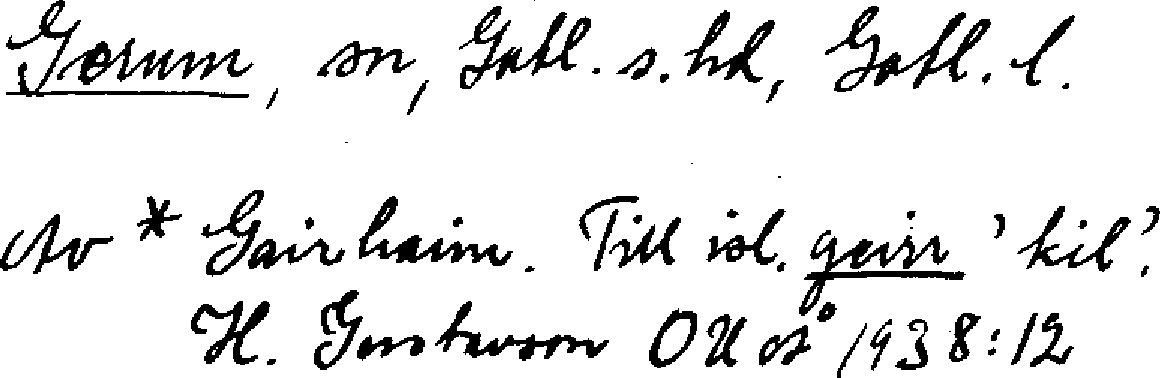 Gerum, sn, Gotl. s. hd, Gotl. l.
Av * Gairhaim. Till isl. geirr 'kil'.
H. Gustavson OUÅ 1938:12